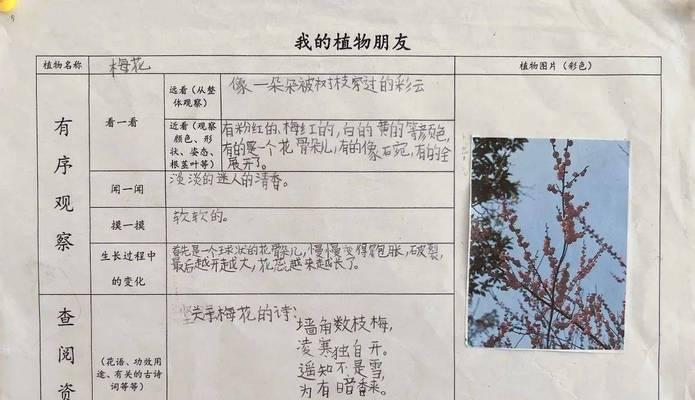 我的植物朋友
植物名称
梅花
植物图片（彩色）
有序观察
看一看
远看（从整
体观察）
像一朵朵被树枝穿过的彩云
近看（观察
颜色、形
状、姿态、
根茎叶等）
有粉红的、梅红的，白的黄的等颜色，
有的是一个花骨朵儿，有的像石宛，有的全
展开了。
闻一闻
淡淡的迷人的清香。
摸一摸
软软的。
生长过程中
的变化
首先是一个球状的花骨朵儿，慢慢变得包胀，破裂，
最后越开越大，花蕊越来越长了。
查阅资
（花语、功效用
途、有关的古诗
词等等）
关于梅花的诗：
墙角数枝梅，
凌寒独自开。
遥知不是雪，
为有暗香来。